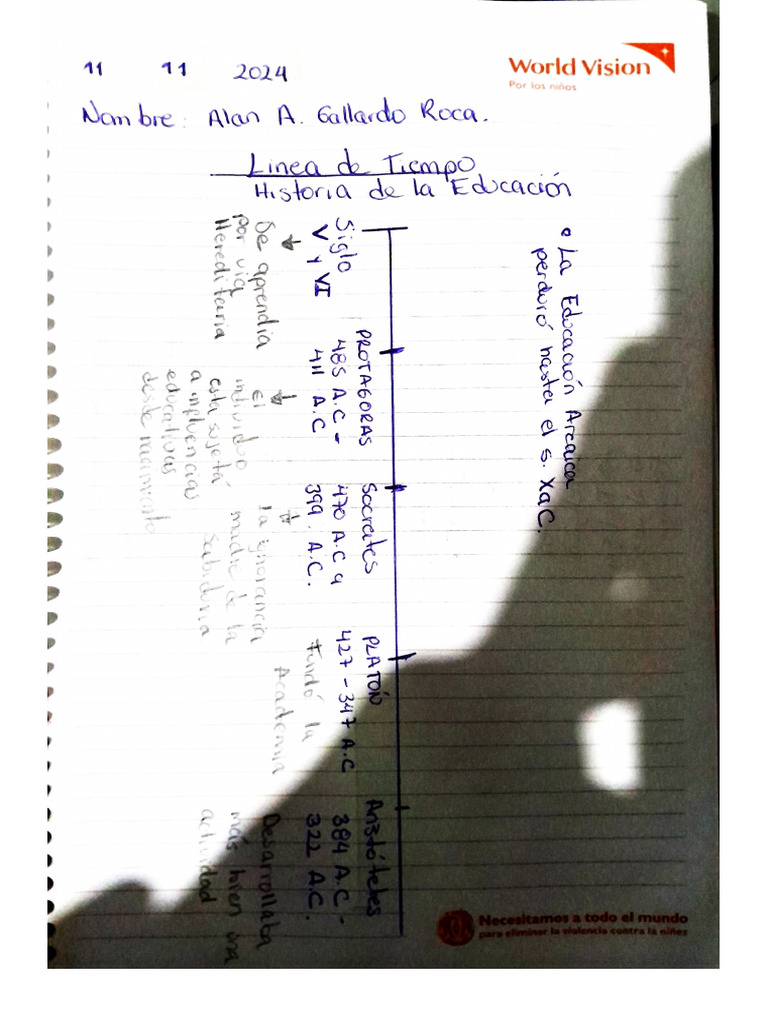 11 11 2024
World Vision
Por los niños
Nombre: Alan A. Gallardo Roca.
Linea de Tiempo
Historia de la Educación
• La Educación Arcaica
perduró hasta el s. XaC.
Siglo
V y VI
Se aprendia
por via
Hereditaria
PROTAGORAS
485 A.C -
411 A.C
El
individuo
está sujeta
a influencias
educativas
desde nacimiento
Socrates
470 A.C a
399. A.C.
la ignorancia
madre de la
sabiduria
PLATÓN
427 - 347 A.C
Fundó la
Academia
Aristóteles
384 A.C -
322 A.C.
Desarrollaba
más bien una
actividad
Necesitamos a todo el mundo
para eliminar la violencia contra la niñez